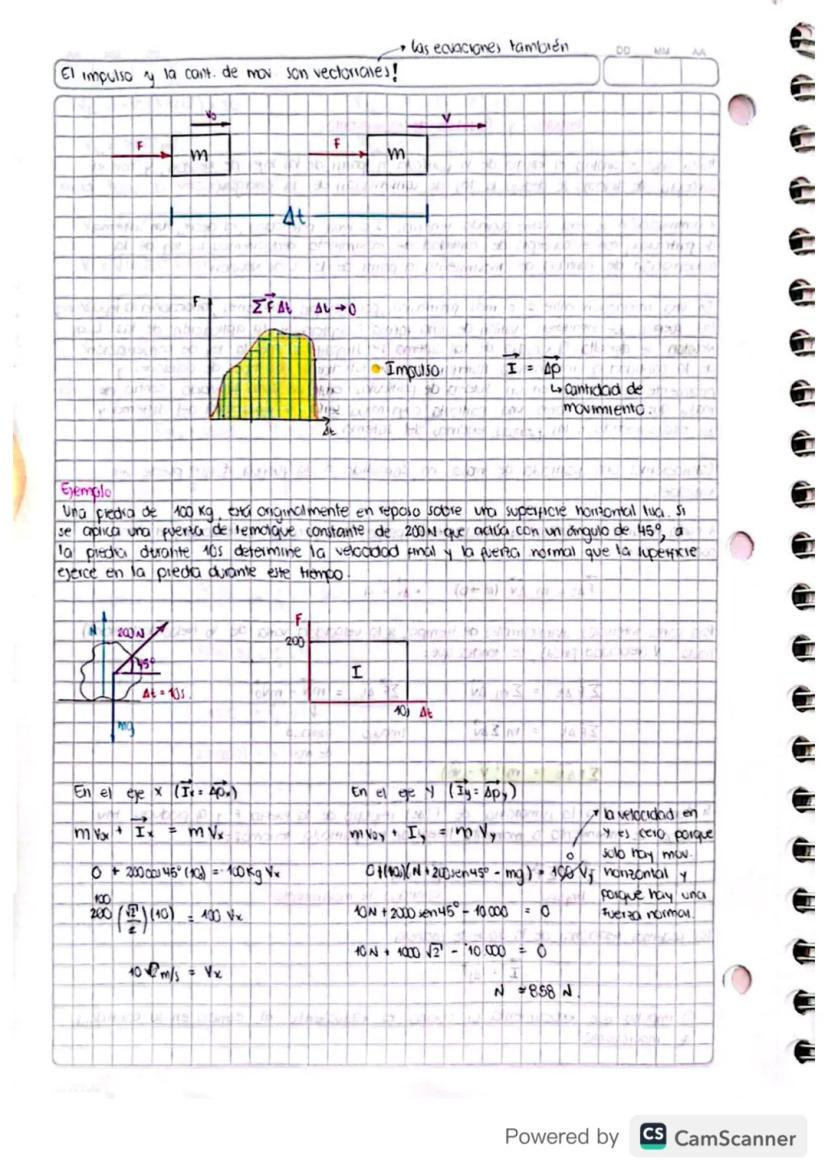 → las ecuaciones también
DD MM AA
El impulso y la cant. de mov. son vectoriales!
V₀
V
F
m
F
m
Δt
F
ΣF⃗ Δt Δt → 0
Impulso: I⃗ = Δp⃗
↳ Cantidad de
movimiento.
Δt
Ejemplo
Una piedra de 100 Kg, está originalmente en reposo sobre una superficie horizontal lisa. Si
se aplica una fuerza de remolque constante de 200 N que actúa con un ángulo de 45°, a
la piedra durante 10s determine la velocidad final y la fuerza normal que la superficie
ejerce en la piedra durante este tiempo.
N
200 N
45°
Δt = 10s.
mg
F
200
I
10s Δt
En el eje x (I⃗x = Δp⃗x)
m V₀x + I⃗x = m Vx
0 + 200 cos 45° (10) = 100 Kg Vx
100
200 (√2/2)(10) = 100 Vx
10√2 m/s = Vx
En el eje y (I⃗y = Δp⃗y)
m V₀y + Iy = m Vy
0
0 + (10)(N + 200 sen 45° - mg) = 100 Vy
10N + 2000 sen 45° - 10 000 = 0
10N + 1000 √2 - 10 000 = 0
N ≈ 858 N.
la velocidad en
y es cero porque
solo hay mov.
horizontal y
porque hay una
fuerza normal.
Powered by CS CamScanner